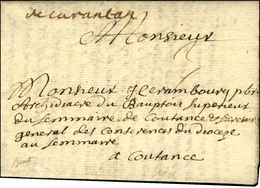 de carantan
Monsieur
Monsieur Cerambourg pbre
Archidiacre du Bauptois Superieur
du semmaire de Coutance et secretere
general des Conferences du dioceze
au semmaire
a Coutance